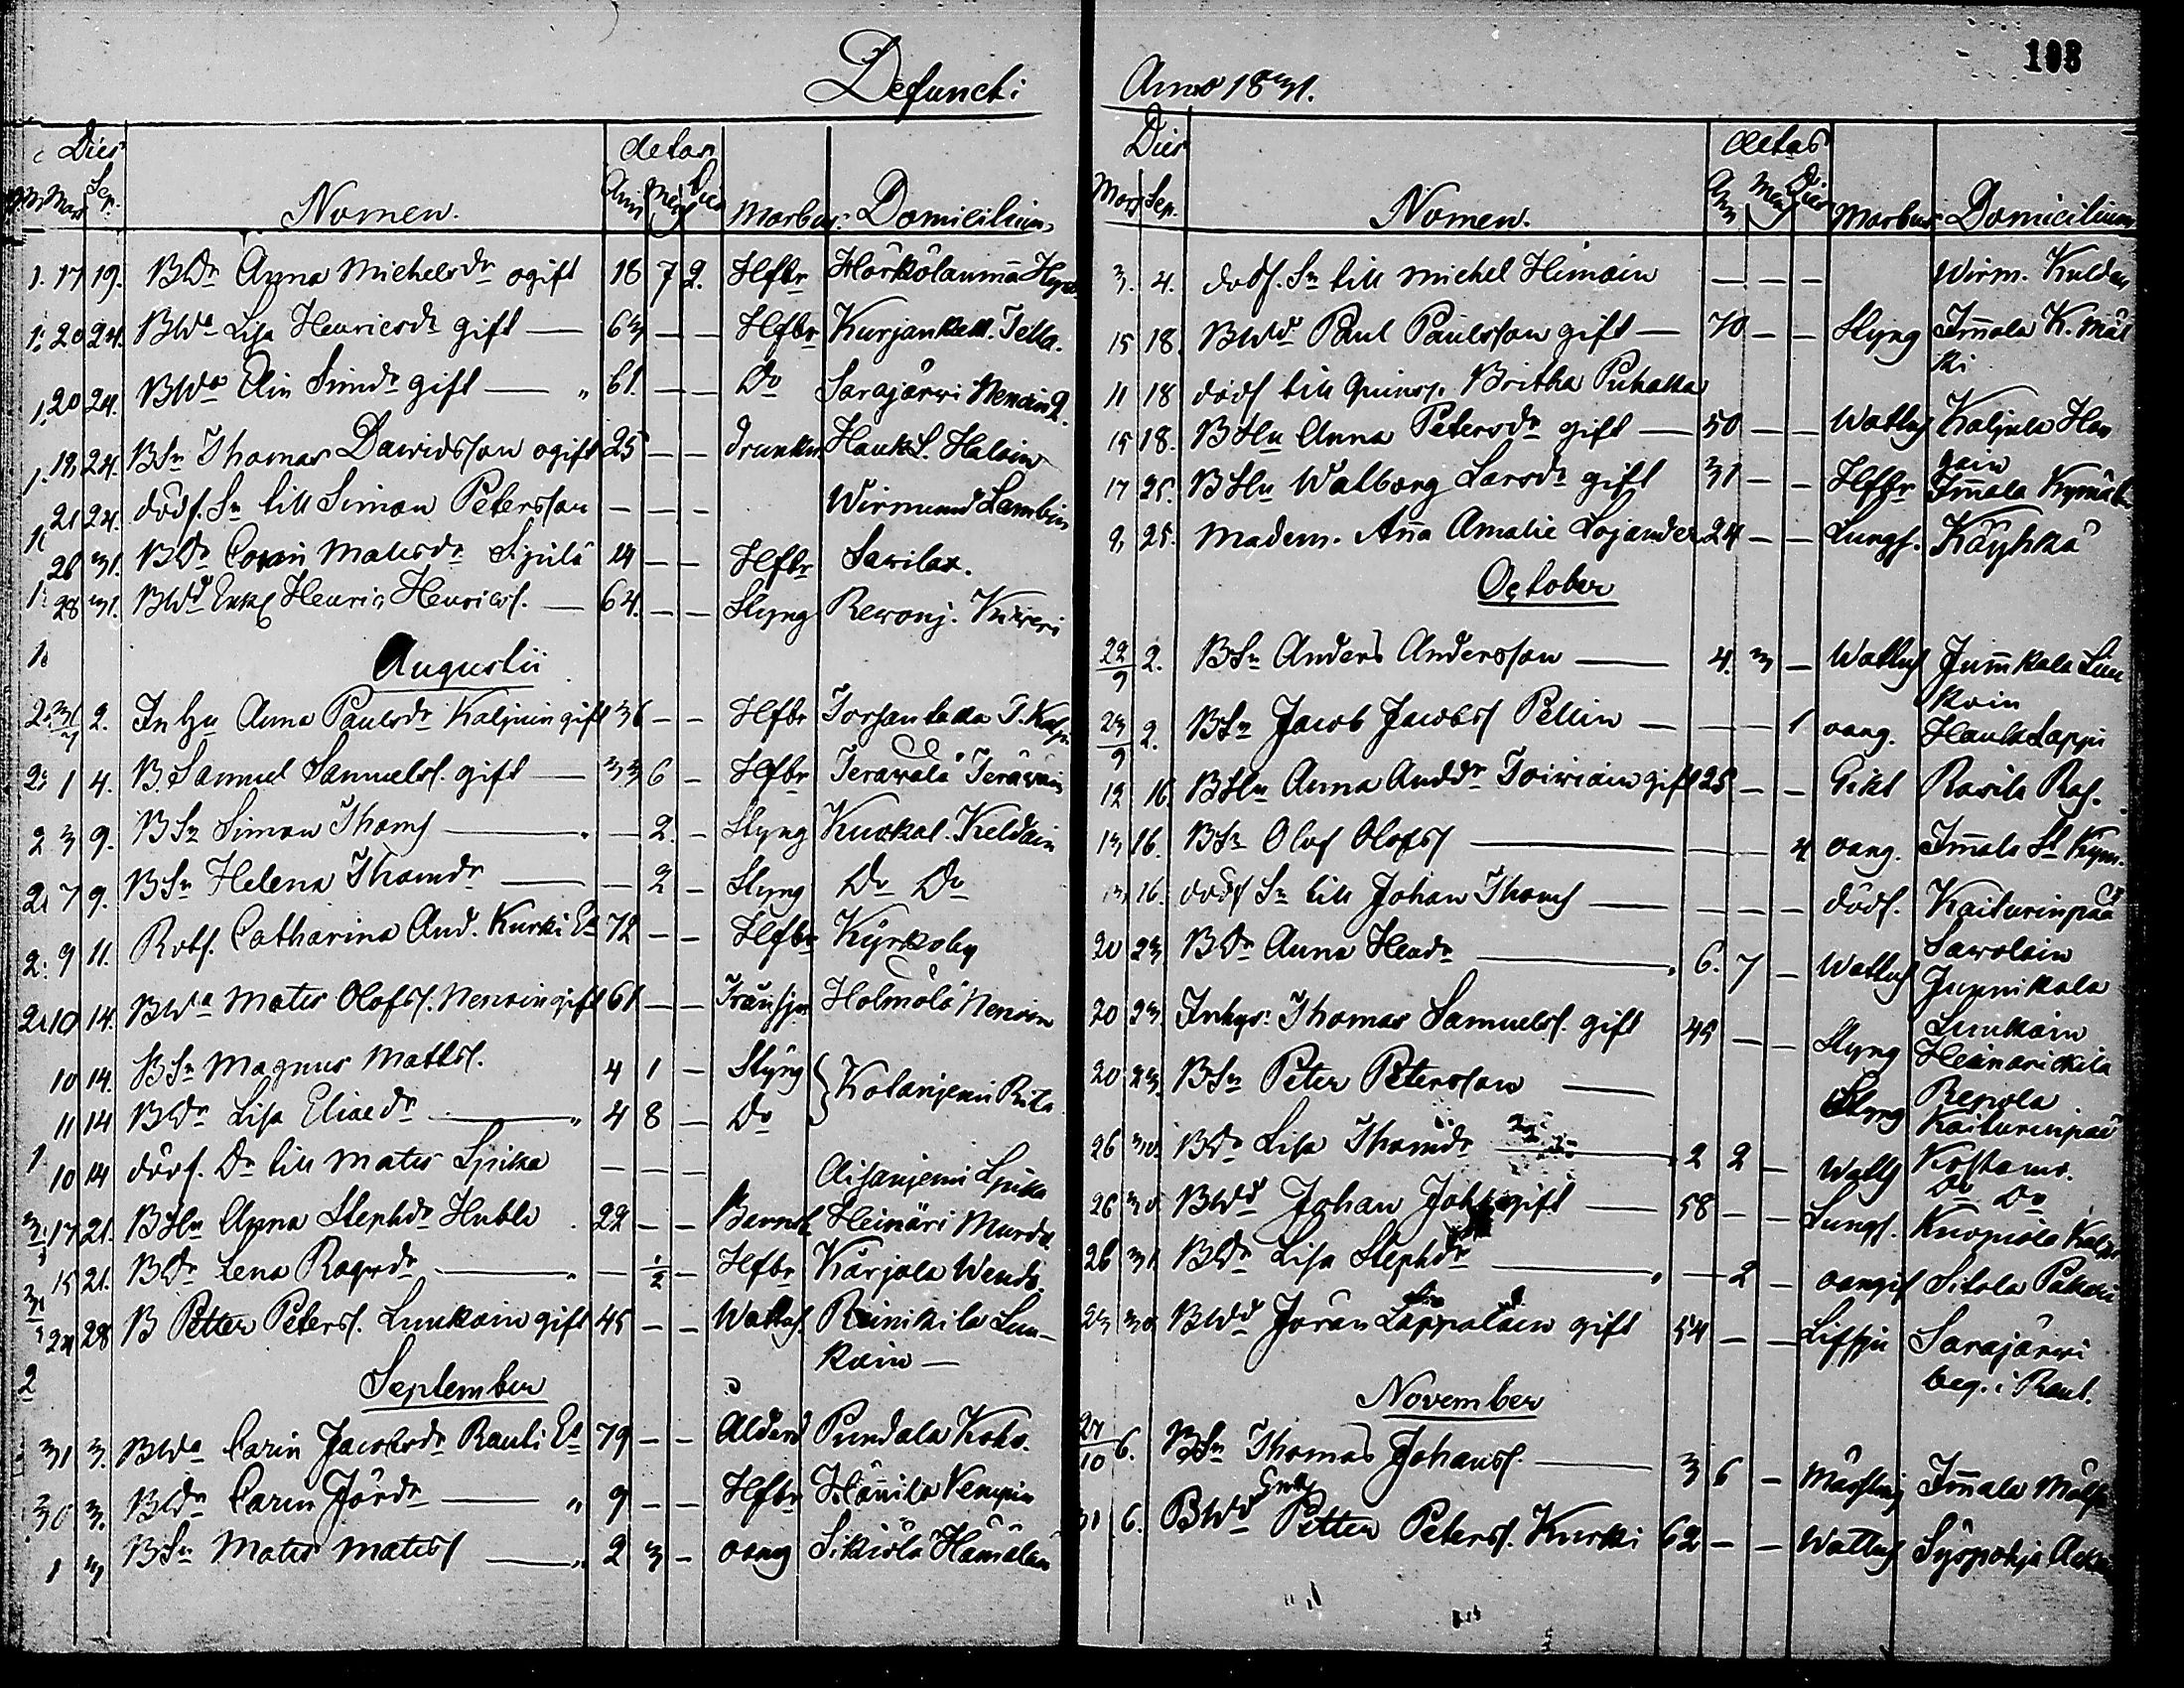 Defuncti
Dies
Aetas
Mort Sep.
Nomen.
Ann Men Dies
Morbus. Domicilium
17 19. BDr Anna Michelsdr ogift 18 7 2. Hfbr Hörkölanmä
20 24. BWa Lisa Henricsdr gift — 63 — — Hfbr Kurjankell. Tella.
20 24. BWa Elin Simdr gift — " 61. — — Do Sarajärwi Nenoin
18 24. BSn Thomas Dawidsson ogift 25 — — drunkn Haukl. Haloin
21 24. dödf. Sn till Simon Petersson — — — Wirmund Lambin
26 31. BDr Carin Matesdr Sipilä 14 — — Hfbr Sawilax.
28 31. BWd Enkl Henric Henricss. — 64. — — Styng Reronj. Kiweri
Augusti
31/7 2. InHu Anna Paulsdr Kaljuin gift 36 — — Hfbr Torsanlaka T.
1 4. B. Samuel Samuelss. gift — 33 6 — Hfbr Teräwälä Teräwäin
3 9. BSn Simon Thoms — " — 2. — Styng Kuokal. Keldoin
7 9. BSn Helena Thomdr — — 2 — Styng Do Do
9 11. Rotf. Catharina And. Kurki Ea 72 — — Hfbr Kyrkoby
10 14. BWa Mates Olofss. Nenoin gift 61 — — Tränsju Holmölä Nenoin
10 14. BSn Magnus Mattss. 4 1 — Styng } Kolanjemi Rita
11 14 BDr Lisa Eliaedr — " 4 8 — Do
10 14 dödf. Dr till Mates Spika — — — Aisanjemi Spika
17 21. BHu Anna Stephdr Hublo . 22 — — Barnsb Heinäri Murdo
15 21. BDr Lena Ragrdr — " — 1/2 — Hfbr Kärjola Wendo
24 28 B Petter Peterss. Luukoin gift 45 — — Wattus. Reinikilo Luu-
koin —
September
31 3. BWa Carin Jacobsdr Rauti Ea 79 — — Ålderd Pundala Koho.
30 3. BDr Carin Jördr — " 9 — — Hfbr Hännilä Nempin
1 3 BSn Mates Matess — " 2 3 — oang Sikiölä Hämäläin
Anno 1831.
198
Dies
Aetas
Mort Sep.
Nomen.
Ann Men Dies
Morbus Domicilium
3. 4. dödf. Sn till Michel Himoin — — — Wirm. Kuldoin
15 18. BWd Paul Paulsson gift — 70 — — Styng Im̄ola K. Mäl
ki
11 18 dödf till Quinsp. Britha Puhakka
15 18. BHu Anna Petersdr gift — 50 — — Wattus Koljola Hon
goin
17 25. BHu Walborg Larsdr gift 31 — — Hfbr Im̄ola Kymäl
9 25. Madem. Ana Amalie Lojander 24 — — Lungs. Käyhkä
October
22/9 2. BSn Anders Andersson — 4. 3 — Wattus Jum̄kala Luu
koin
23/9 2. BSn Jacob Jacobss Pellin — — — 1 oang. Haukl Lappi
12 16. BHu Anna Anddr Toiwiain gift 25 — — Gikt Rasila Ras.
13 16. BSn Olof Olofss — — — 4 oang. Im̄ola St Kym.
13 16. dödf Sn till Johan Thoms — — — — dödf. Kaiturinpää
20 23 BDr Anna Hendr — " 6. 7 — Wattus Sawolain
Junnikala
20 23. Inhys: Thomas Samuelss. gift 45 — — Styng Luukoin
Heinärickila
20 23. BSn Peter Petersson — Styng Repola
Kaiturinpää
26 30. BDr Lisa Thomdr — 2 2 — Watts Kostamo.
26 30 BWd Johan Johss gift — 58 — — Lungs. Do Do
Kuomiolo
26 31 BDr Lisa Stephdr — " — 2 — oangif Sitola Pukari
23 30 BWd Jöran Lappalain gift 54 — — Lifsju Sarajärwi
beg. i Raut.
November
27/10 6. BSn Thomas Johanss. — 3 6 — Mässling Im̄ola
31 6. BWd Petter Peterss. Kurki 62 — — Wattus Syspohja